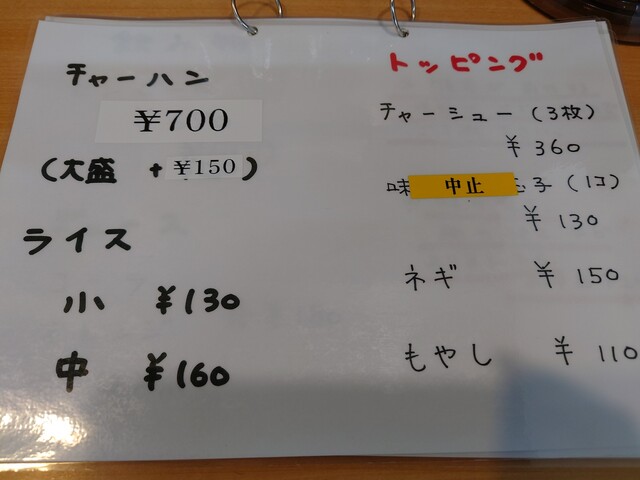 チャーハン
¥700
(大盛 + ¥150)
ライス
小 ¥130
中 ¥160
トッピング
チャーシュー(3枚)
¥360
味 中止 子(1コ)
¥130
ネギ ¥150
もやし ¥110